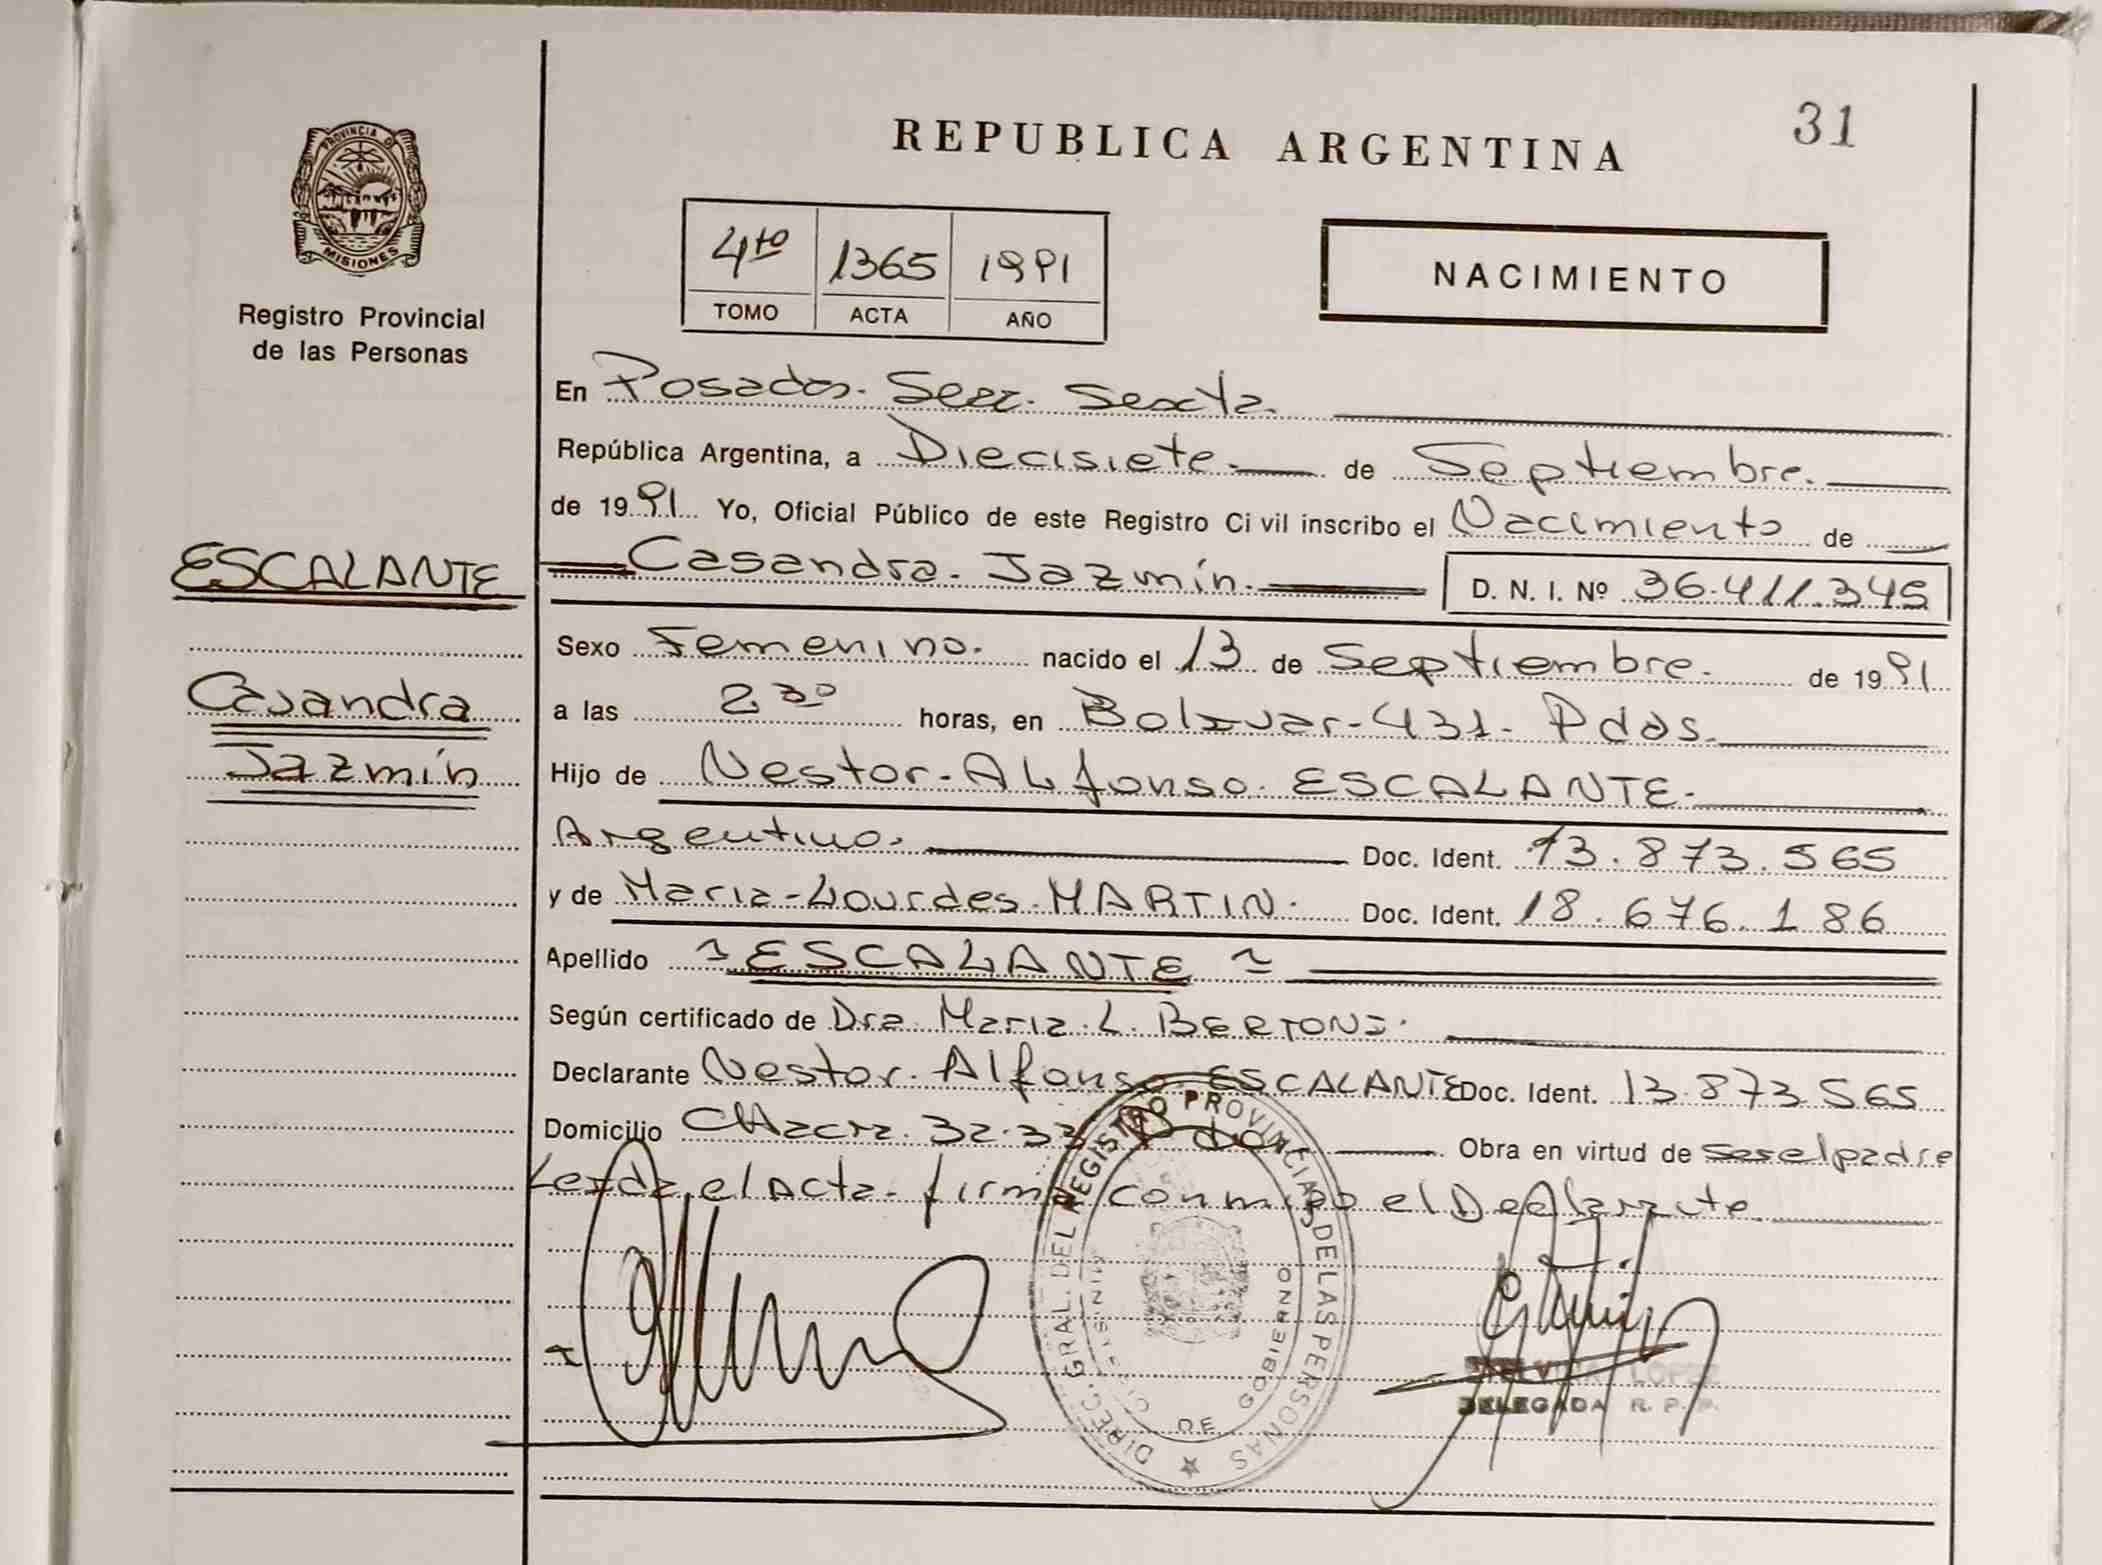 31
REPUBLICA ARGENTINA
PROVINCIA DE
MISIONES
Registro Provincial
de las Personas
4to 1365 1991
TOMO ACTA AÑO
NACIMIENTO
En Posadas. Secc. Sexta.
República Argentina, a Diecisiete. de Septiembre.
de 1991 Yo, Oficial Público de este Registro Ci vil inscribo el Nacimiento de
ESCALANTE
Casandra. Jazmín. D. N. I. Nº 36.411.345
Sexo Femenino. nacido el 13 de Septiembre. de 1991
Casandra
Jazmín
a las 2,30 horas, en Bolivar-431- Pdas.
Hijo de Nestor-Alfonso. ESCALANTE.
Argentino. Doc. Ident. 13.873.565
y de Maria-Lourdes. MARTIN. Doc. Ident. 18.676.186
Apellido ESCALANTE
Según certificado de Dra. Maria. L. BERTONI.
Declarante Nestor. Alfonso. ESCALANTE Doc. Ident. 13.873.565
Domicilio Chacra. 32.33 Obra en virtud de ser el padre
Leída el Acta. firma conmigo el Declarante
DIREC. GRAL. DEL REGISTRO PROVINCIAL DE LAS PERSONAS
DE GOBIERNO
LOPEZ
DELEGADA R. P. P.